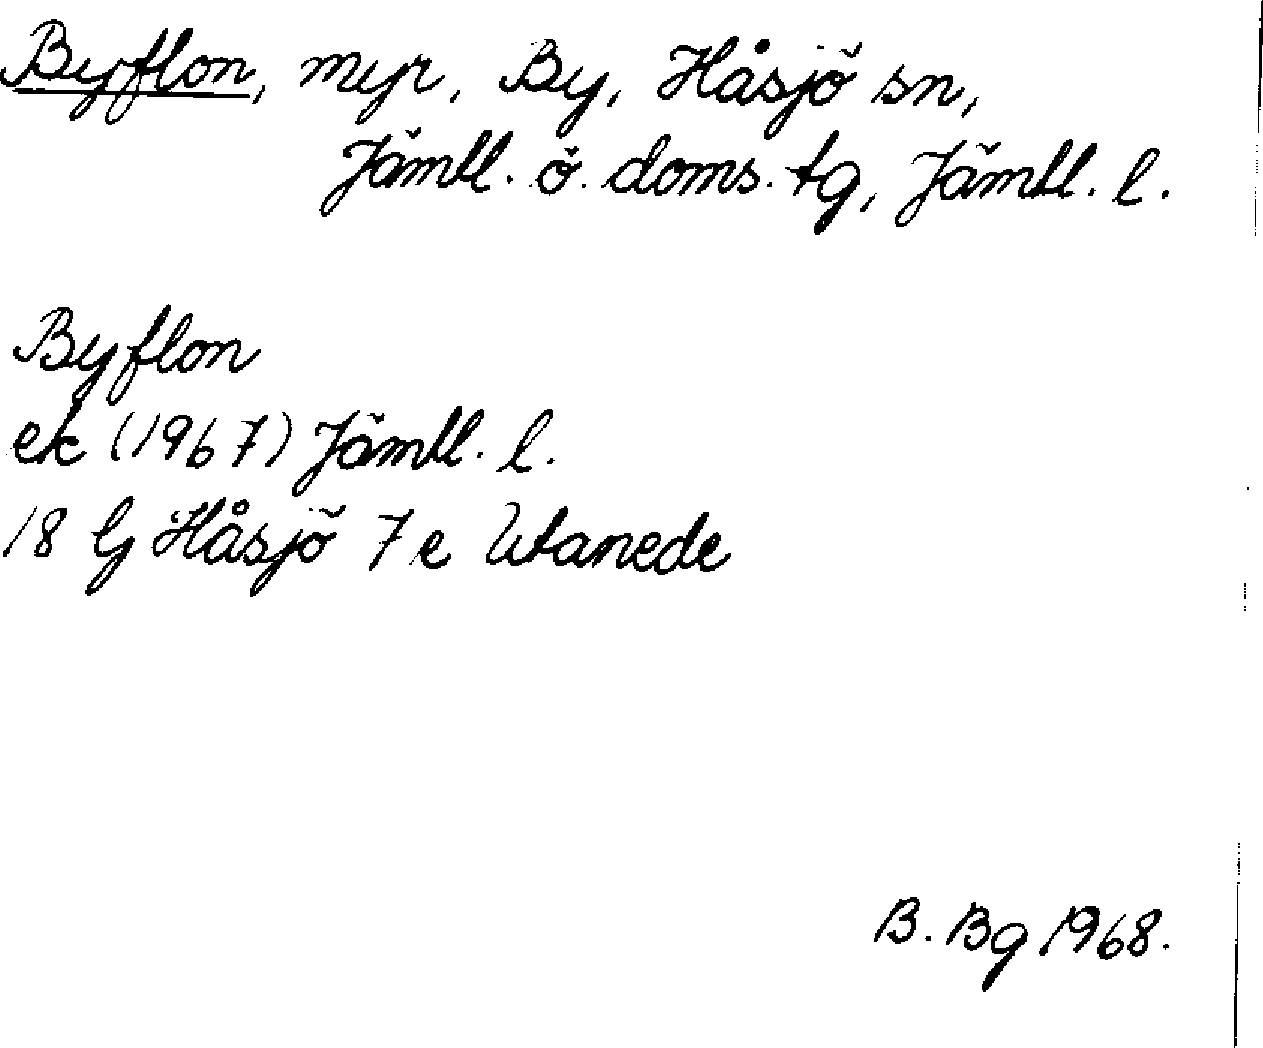 Byflon, myr, By, Håsjö sn,
Jämtl. ö. doms. tg, Jämtl. l.
Byflon
ek (1967) Jämtl. l.
18 G Håsjö 7 e Utanede
B. Bg 1968.